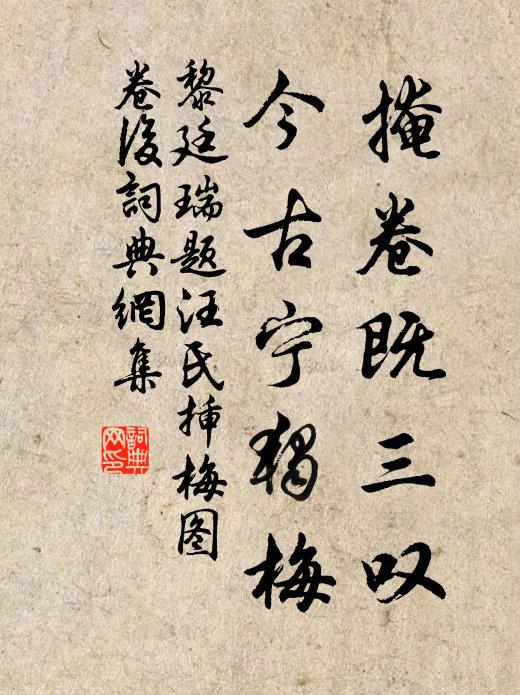 掩卷既三叹
今古宁独梅
黎廷瑞题汪氏插梅图
卷后詞典網集
詞典网印